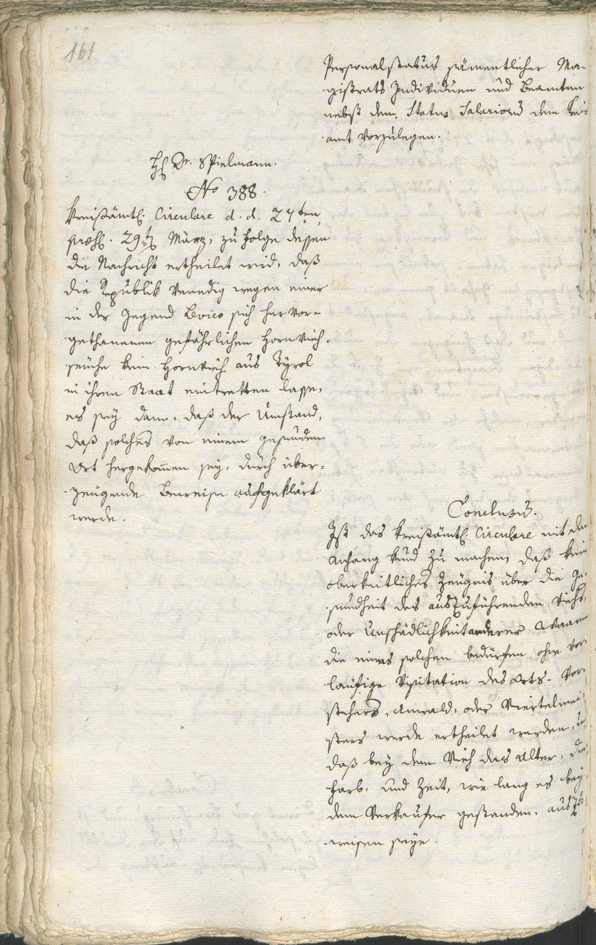 161
Personalstatus sämentlicher Ma-
gistrats Individuen und Beamten
nebst dem Status Salarioru͠ dem
amt vorzulegen.
H. Dr. Spielmann.
No 388.
Kreisämtl. Circulare d. d. 27ten
praes. 29t März, zu folge dessen
die Nachricht ertheilet wird, daß
die Republik Venedig wegen einer
in der Gegend Boico sich hervor-
gethanenen gefährlichen Hornvieh-
seuche kein Hornvieh aus Tyrol
in ihren Staat eintretten lasse,
es sey dann, daß der Umstand,
daß solches von einem gesunden
Ort hergekom̄en sey, durch über-
zeugende Beweise aufgeklärt
werde.
Conclusu͠.
Ist das Kreisämtl. Circulare mit dem
Anhang kund zu machen, daß kein
oberkeitliches Zeugnis über die Ge-
sundheit des auszuführenden Viehs,
oder Unschädlichkeit anderer Waaren
die eines solchen bedürfen, ohne vor-
läufige Visitation des Orts- Vor-
stehers, Anwald, oder Viertelmei-
sters werde ertheilet werden,
daß bey dem Vieh das Alter, die
Farb, und Zeit, wie lang es bey
dem Verkaufer gestanden, auszu-
weisen seye.